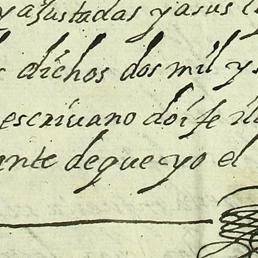 y ajustadas y a sus
dichos dos mil y
escriuano doi fe
ante de que yo el